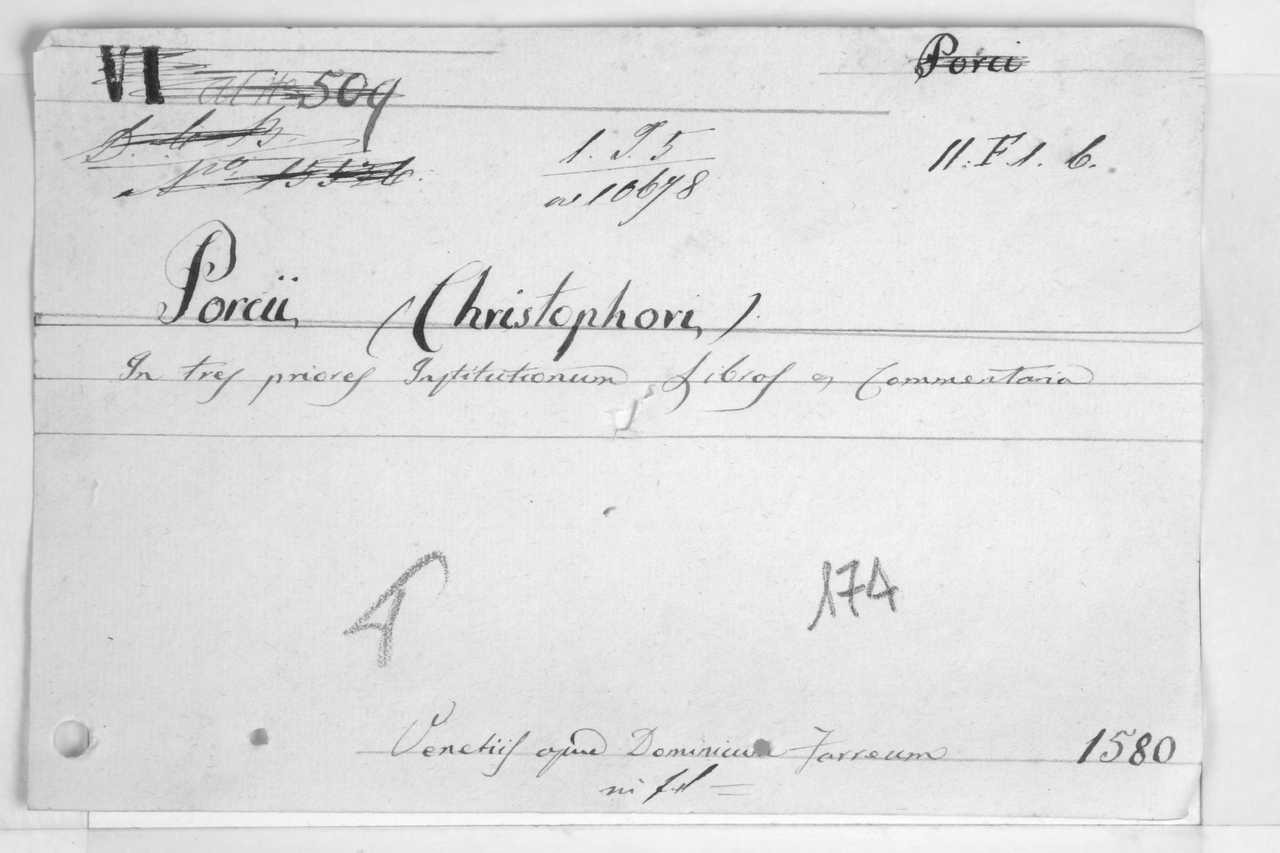 VI 509
Porci
1. J. 5
10678
11. F. 1. 6.
Porcii, (Christophori,)
In tres priores Institutionum Libros Commentaria
174
Venetiis apud Dominicum Farreum 1580